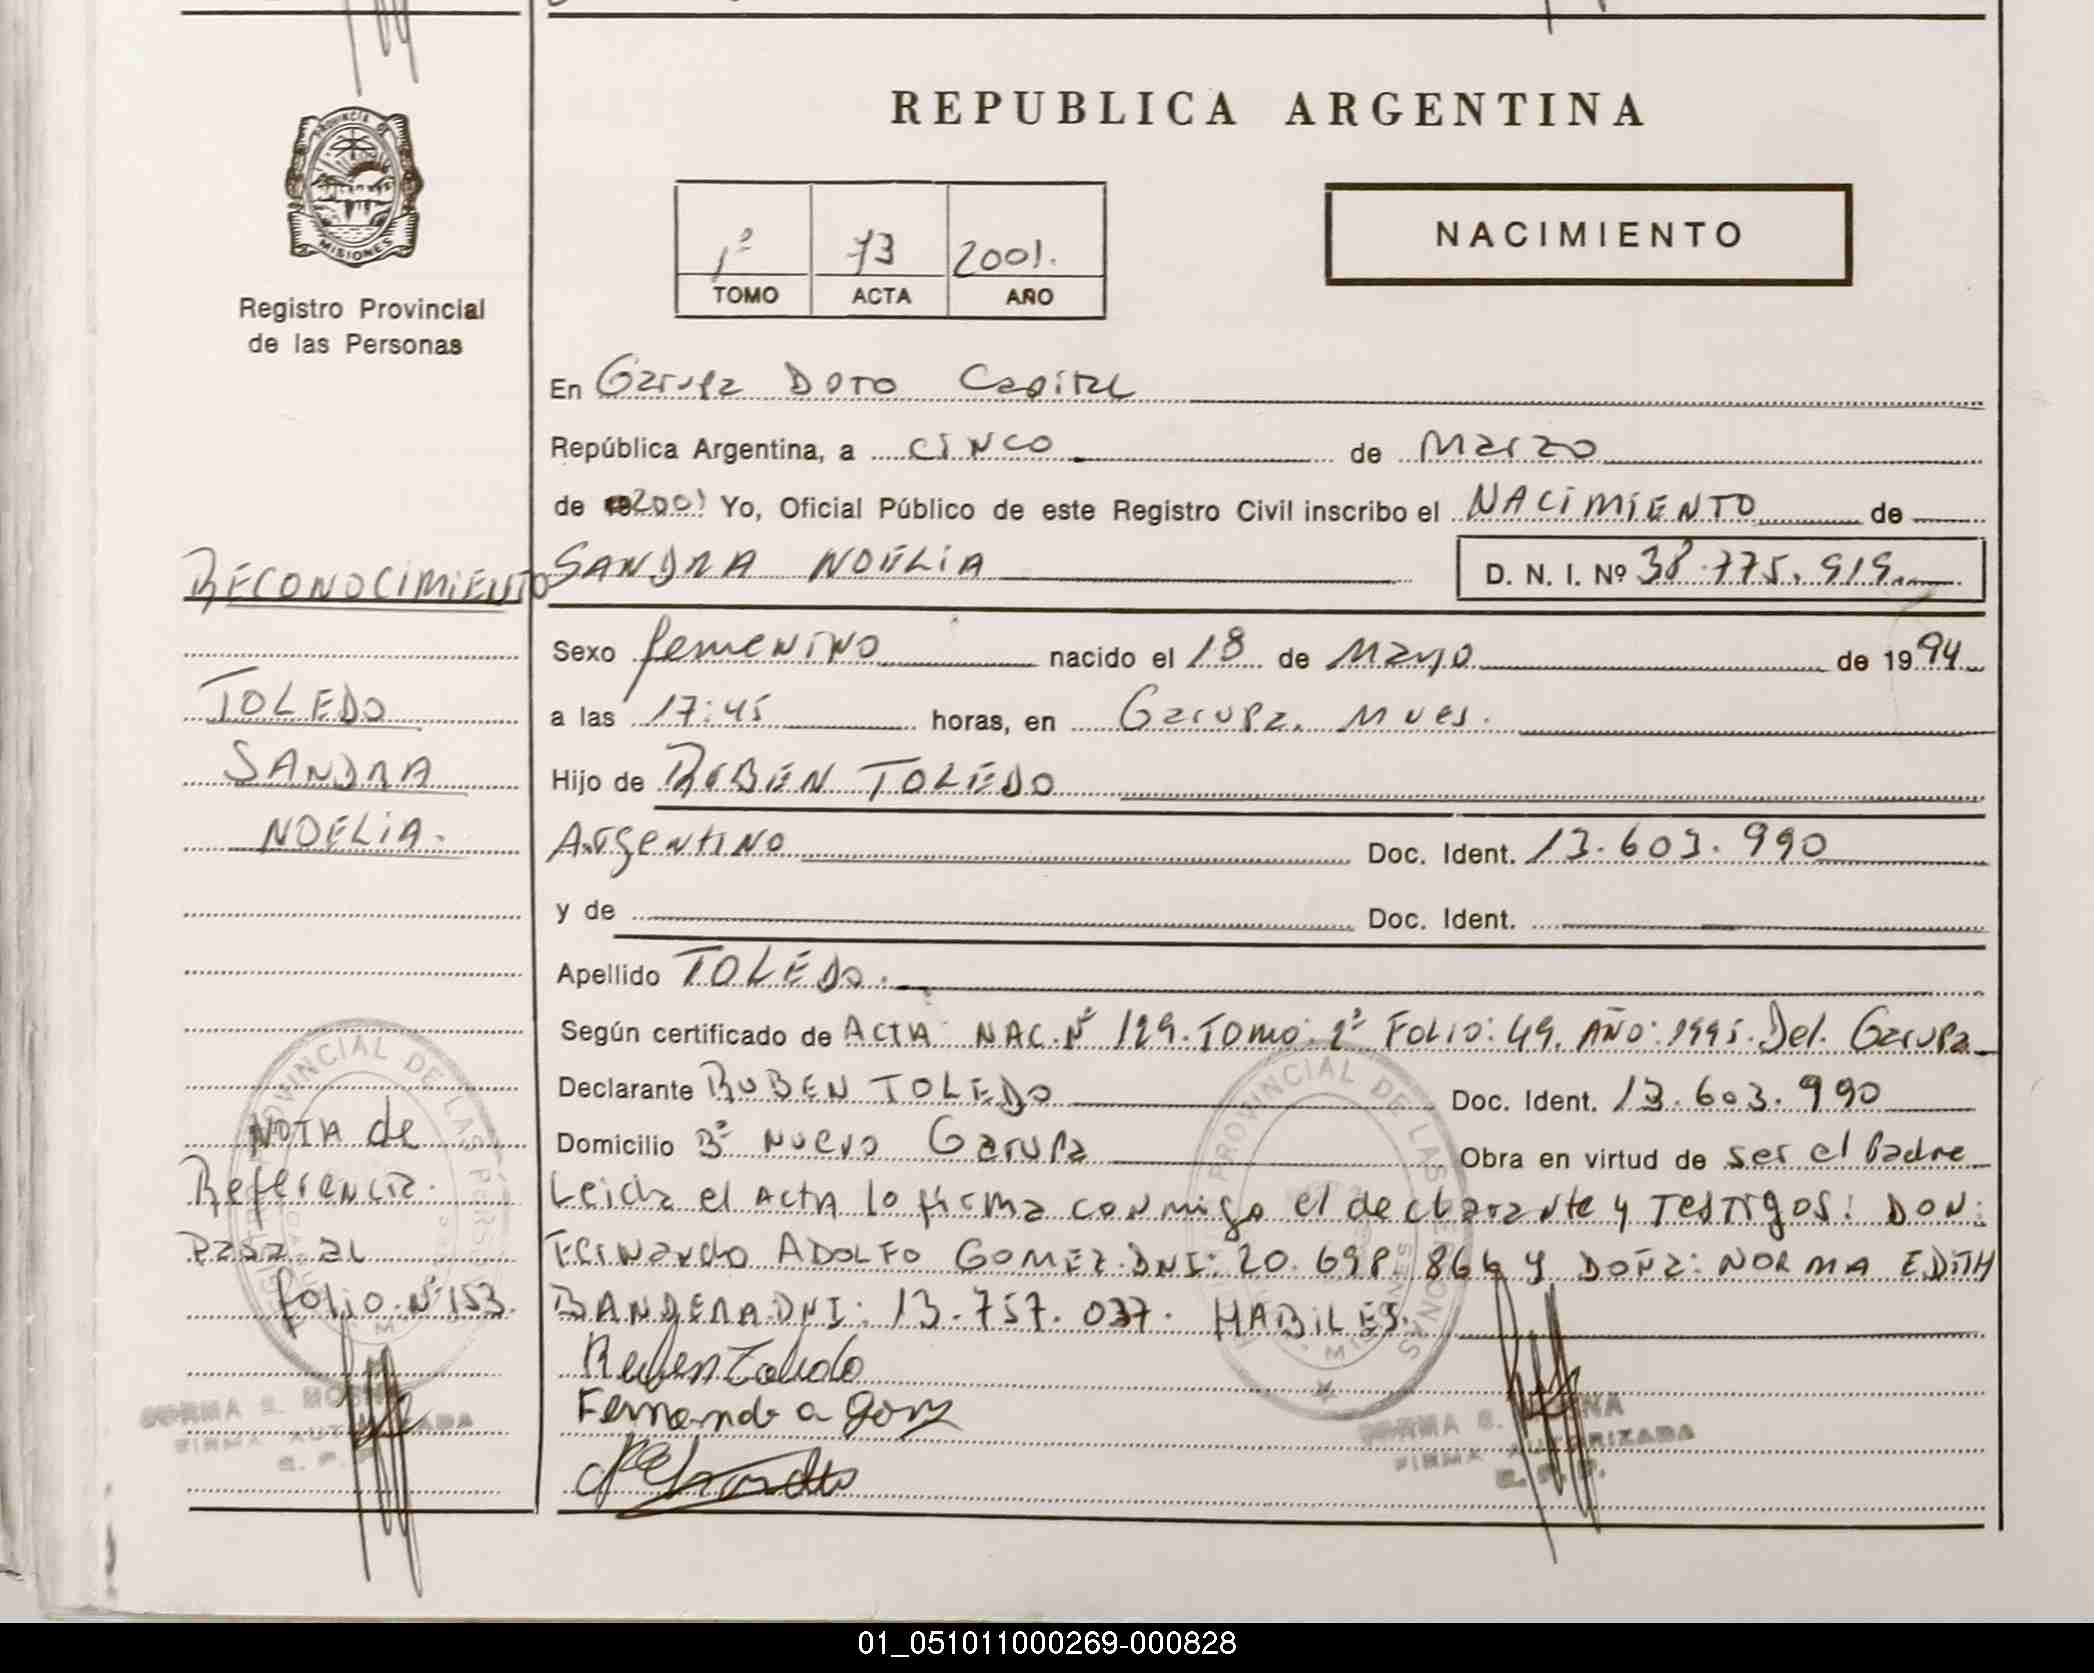 REPUBLICA ARGENTINA
PROVINCIA DE
MISIONES
Registro Provincial
de las Personas
1º 73 2001.
TOMO ACTA AÑO
NACIMIENTO
En Garupa Dpto Capital
República Argentina, a cinco de Marzo
de 2001 Yo, Oficial Público de este Registro Civil inscribo el NACIMIENTO de
SANDRA NOELIA D. N. I. Nº 38.775.919.
Sexo femenino nacido el 18 de Mayo de 1994
a las 17:45 horas, en Garupa. Mnes.
Hijo de RUBEN TOLEDO
Argentino Doc. Ident. 13.603.990
y de Doc. Ident.
Apellido TOLEDO.
Según certificado de ACTA NAC. Nº 129. Tomo: 1º Folio: 49. AÑO: 1995. Del. Garupa
Declarante RUBEN TOLEDO Doc. Ident. 13.603.990
Domicilio Bº Nuevo Garupa Obra en virtud de ser el Padre
Leida el ACTA lo firma conmigo el declarante y Testigos: DON:
Fernando ADOLFO GOMEZ. DNI: 20.698.866 y DOÑA: NORMA EDITH
BANDERA. DNI: 13.757.037. HABILES.
Ruben Toledo
Fernando a gomz
RECONOCIMIENTO
TOLEDO
SANDRA
NOELIA.
NOTA de
Referencia.
Pasa al
folio. Nº 153.
PROVINCIAL DE LAS PERSONAS
NORMA S.
FIRMA AUTORIZADA
R. P. P.
PROVINCIAL DE LAS PERSONAS
NORMA S.
FIRMA AUTORIZADA
R. P. P.
01_051011000269-000828